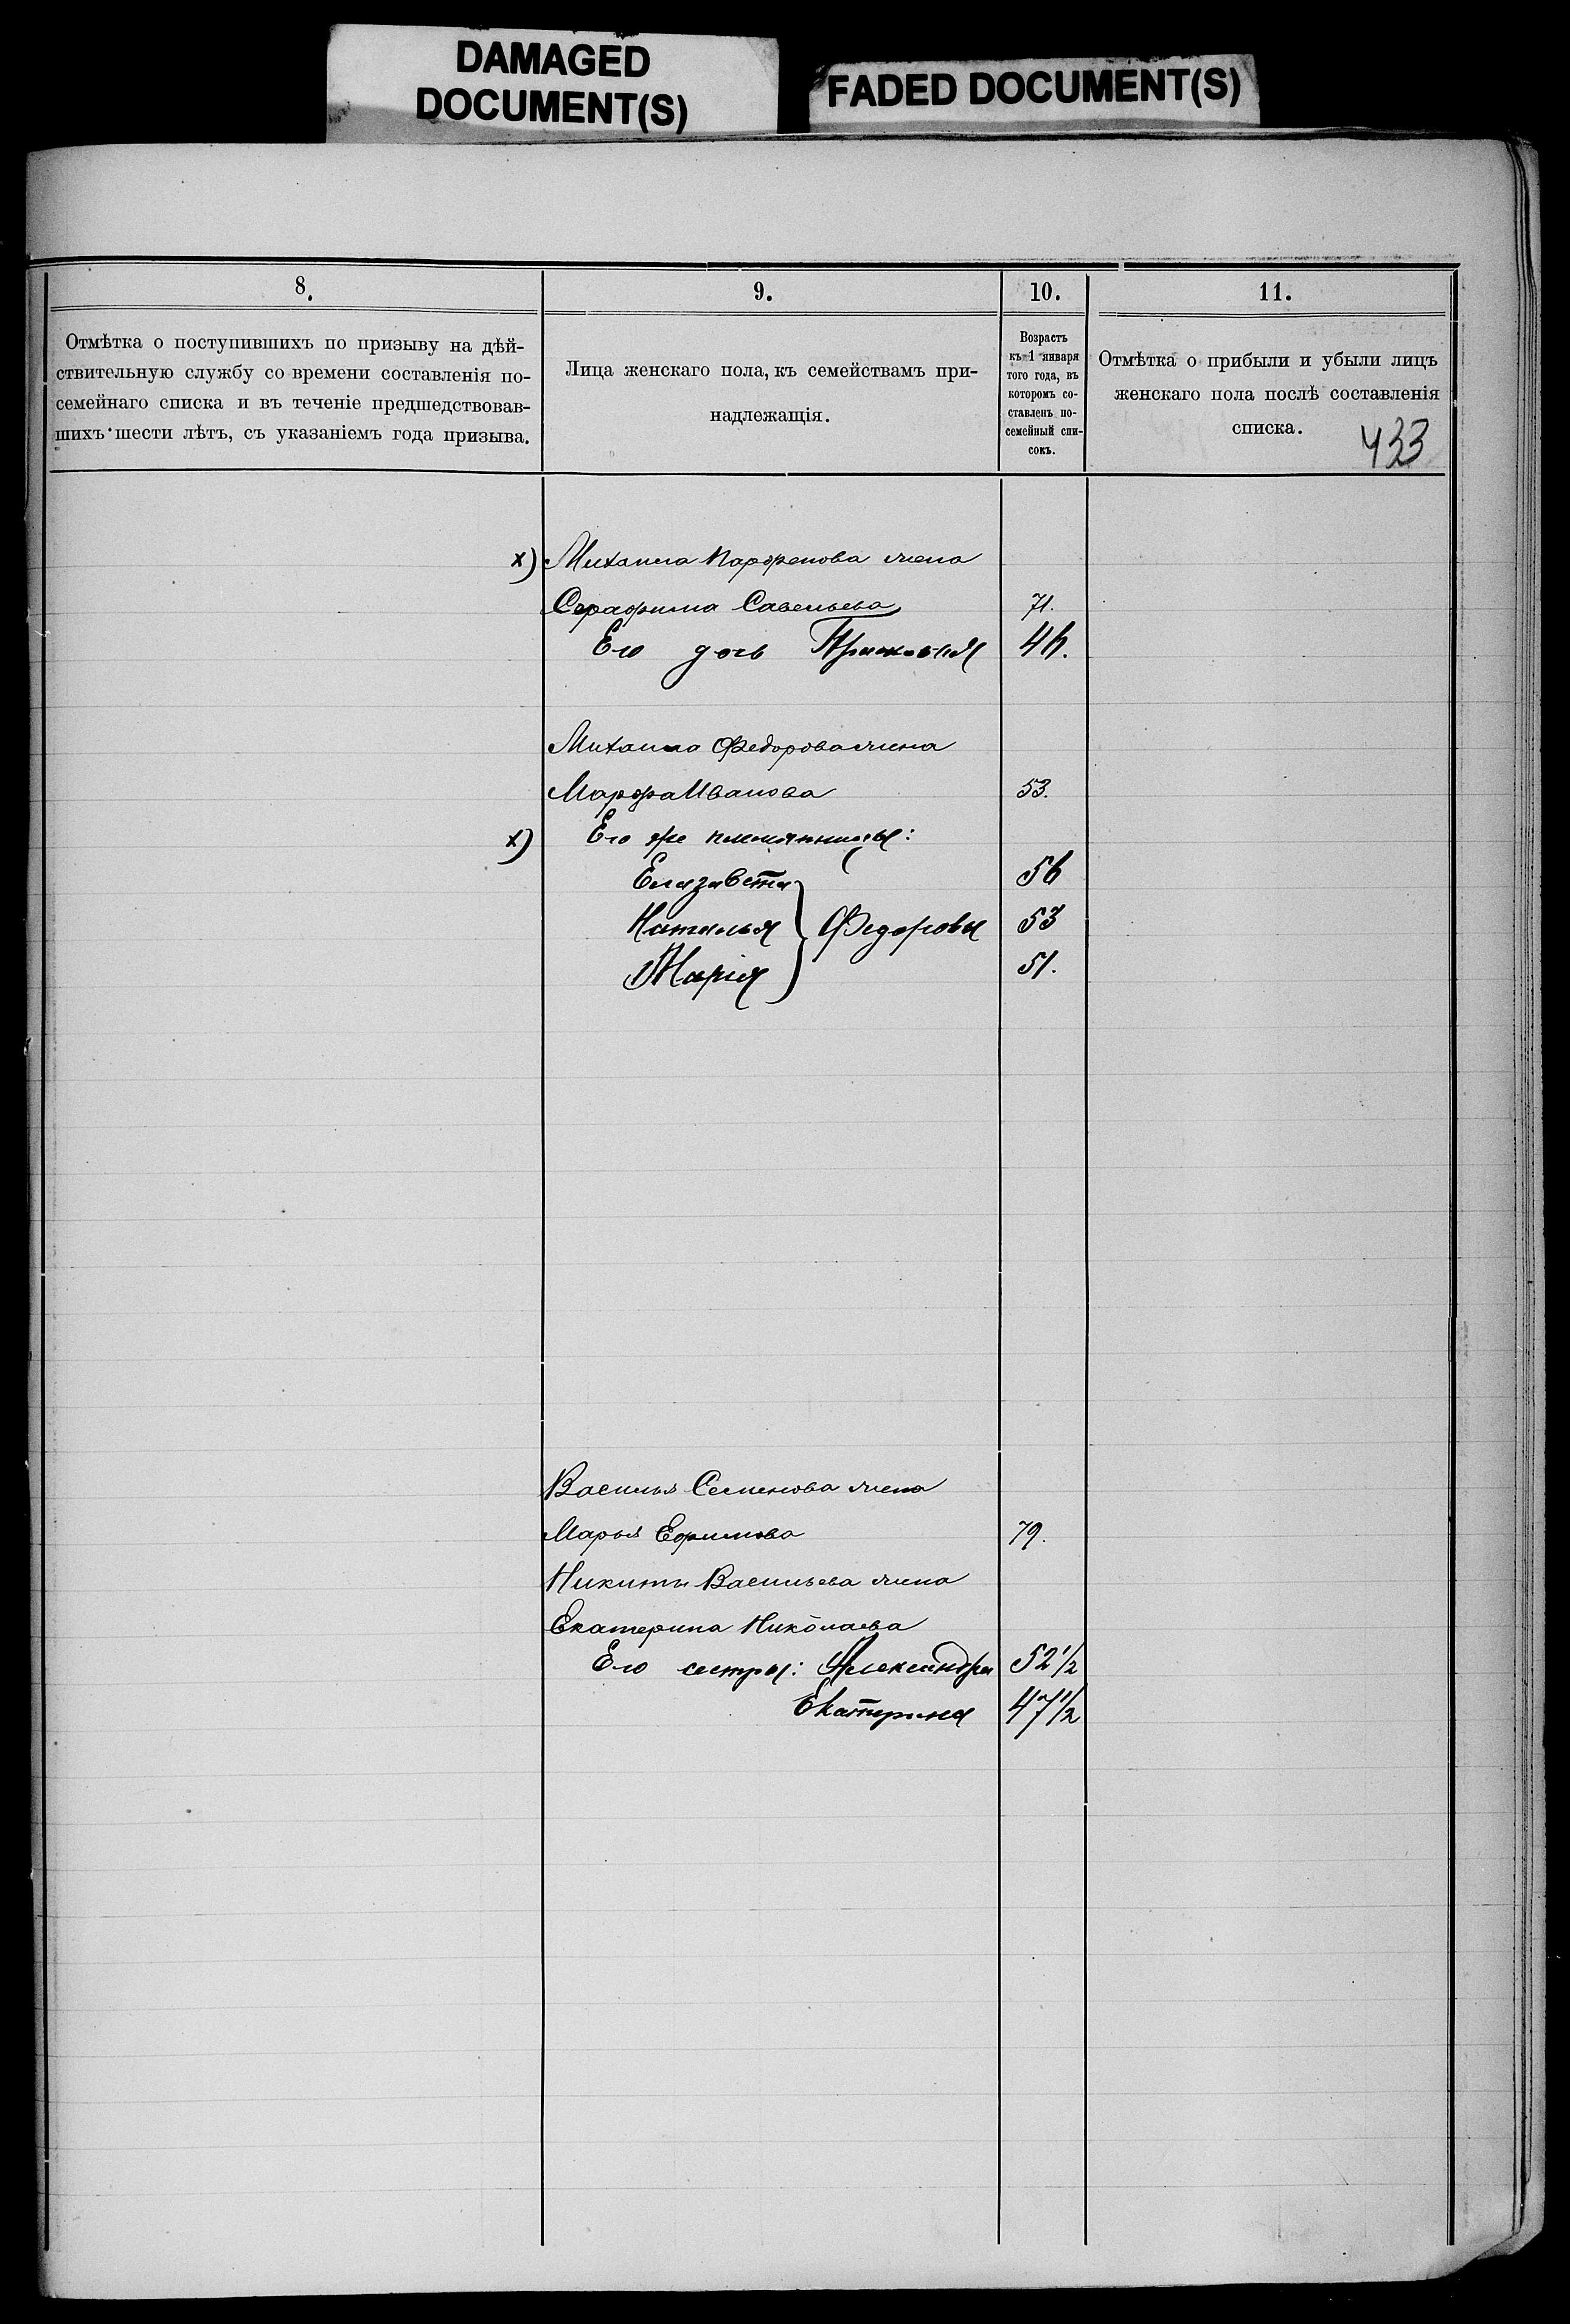 DAMAGED
DOCUMENT(S)
FADED DOCUMENT(S)
8.
9.
10.
11.
Отмѣтка о поступившихъ по призыву на дѣй-
ствительную службу со времени составленія по-
семейнаго списка и въ теченіе предшедствовав-
шихъ шести лѣтъ, съ указаніемъ года призыва.
Лица женскаго пола, къ семействамъ при-
надлежащія.
Возрастъ
къ 1 января
того года, въ
которомъ со-
ставленъ по-
семейный спи-
сокъ.
Отмѣтка о прибыли и убыли лицъ
женскаго пола послѣ составленія
списка.
433
х) Михаила Парфенова жена
Серафима Савельева 71.
Его дочь Прасковья 46.
Михаила Федорова жена
Марфа Иванова 53.
х) Его же племянницы:
Елизавета 56
Наталья } Федоровы 53
Марія 51.
Василья Семенова жена
Марья Ефимова 79.
Никиты Васильева жена
Екатерина Николаева
Его сестры: Александра 52 1/2
Екатерина 47 1/2